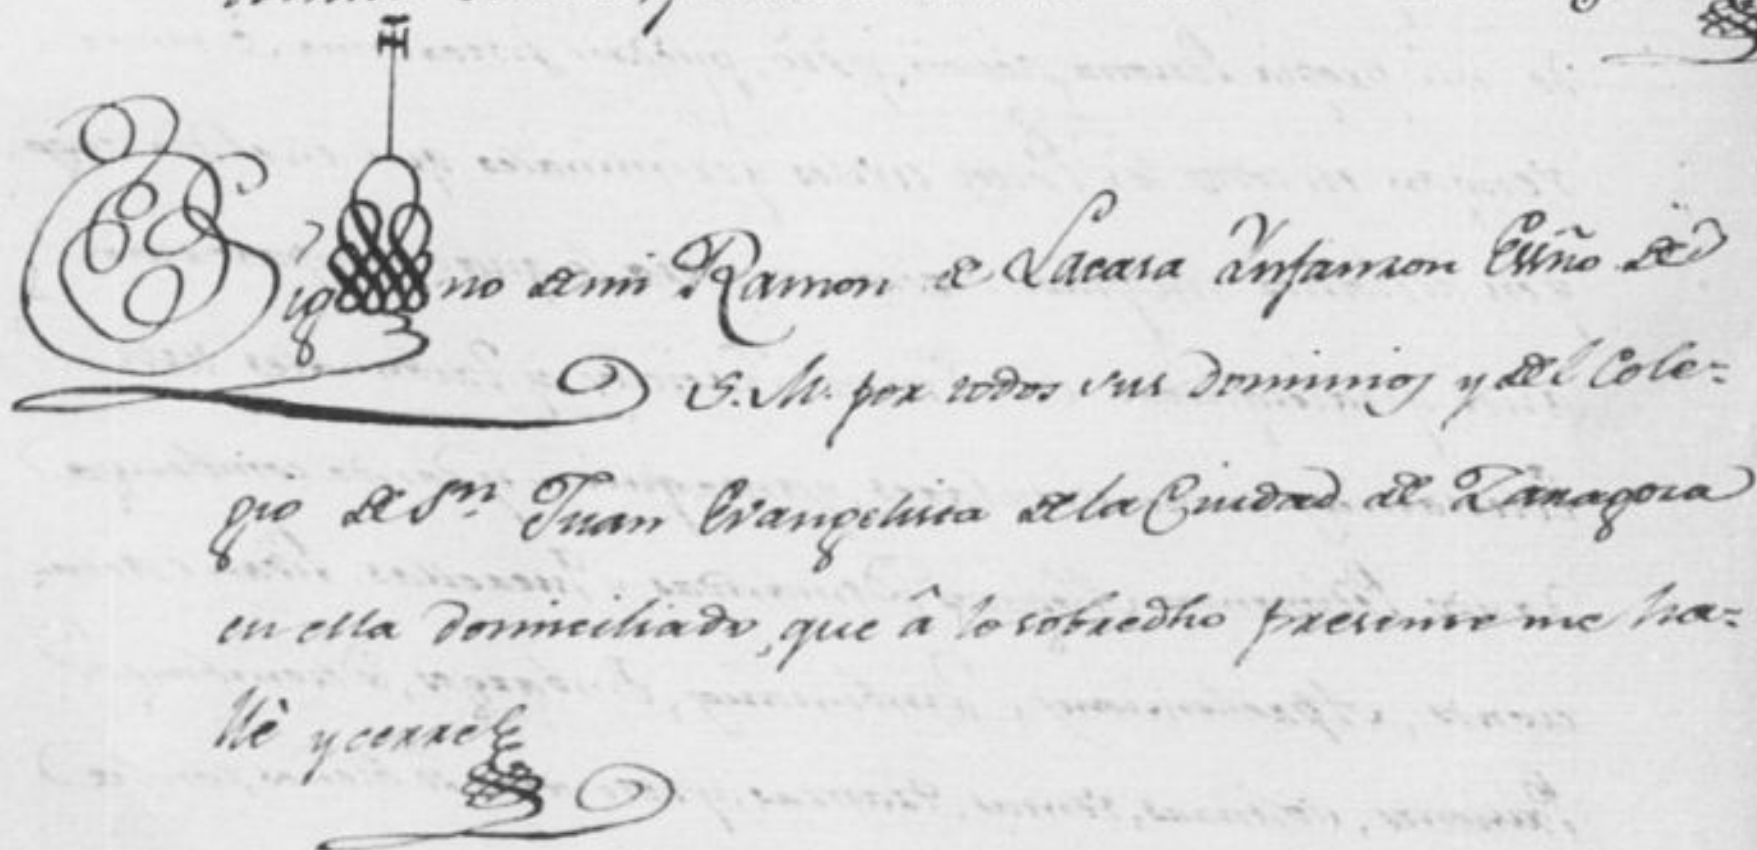 Sig no de mi Ramon de Lacasa Ynfanzon Essño de
S. M. por todos sus Dominios y del Cole=
gio de Sn. Juan Evangelista de la Ciudad de Zaragoza
en ella domiciliado, que â lo sobredho presente me ha=
llè y cerrè